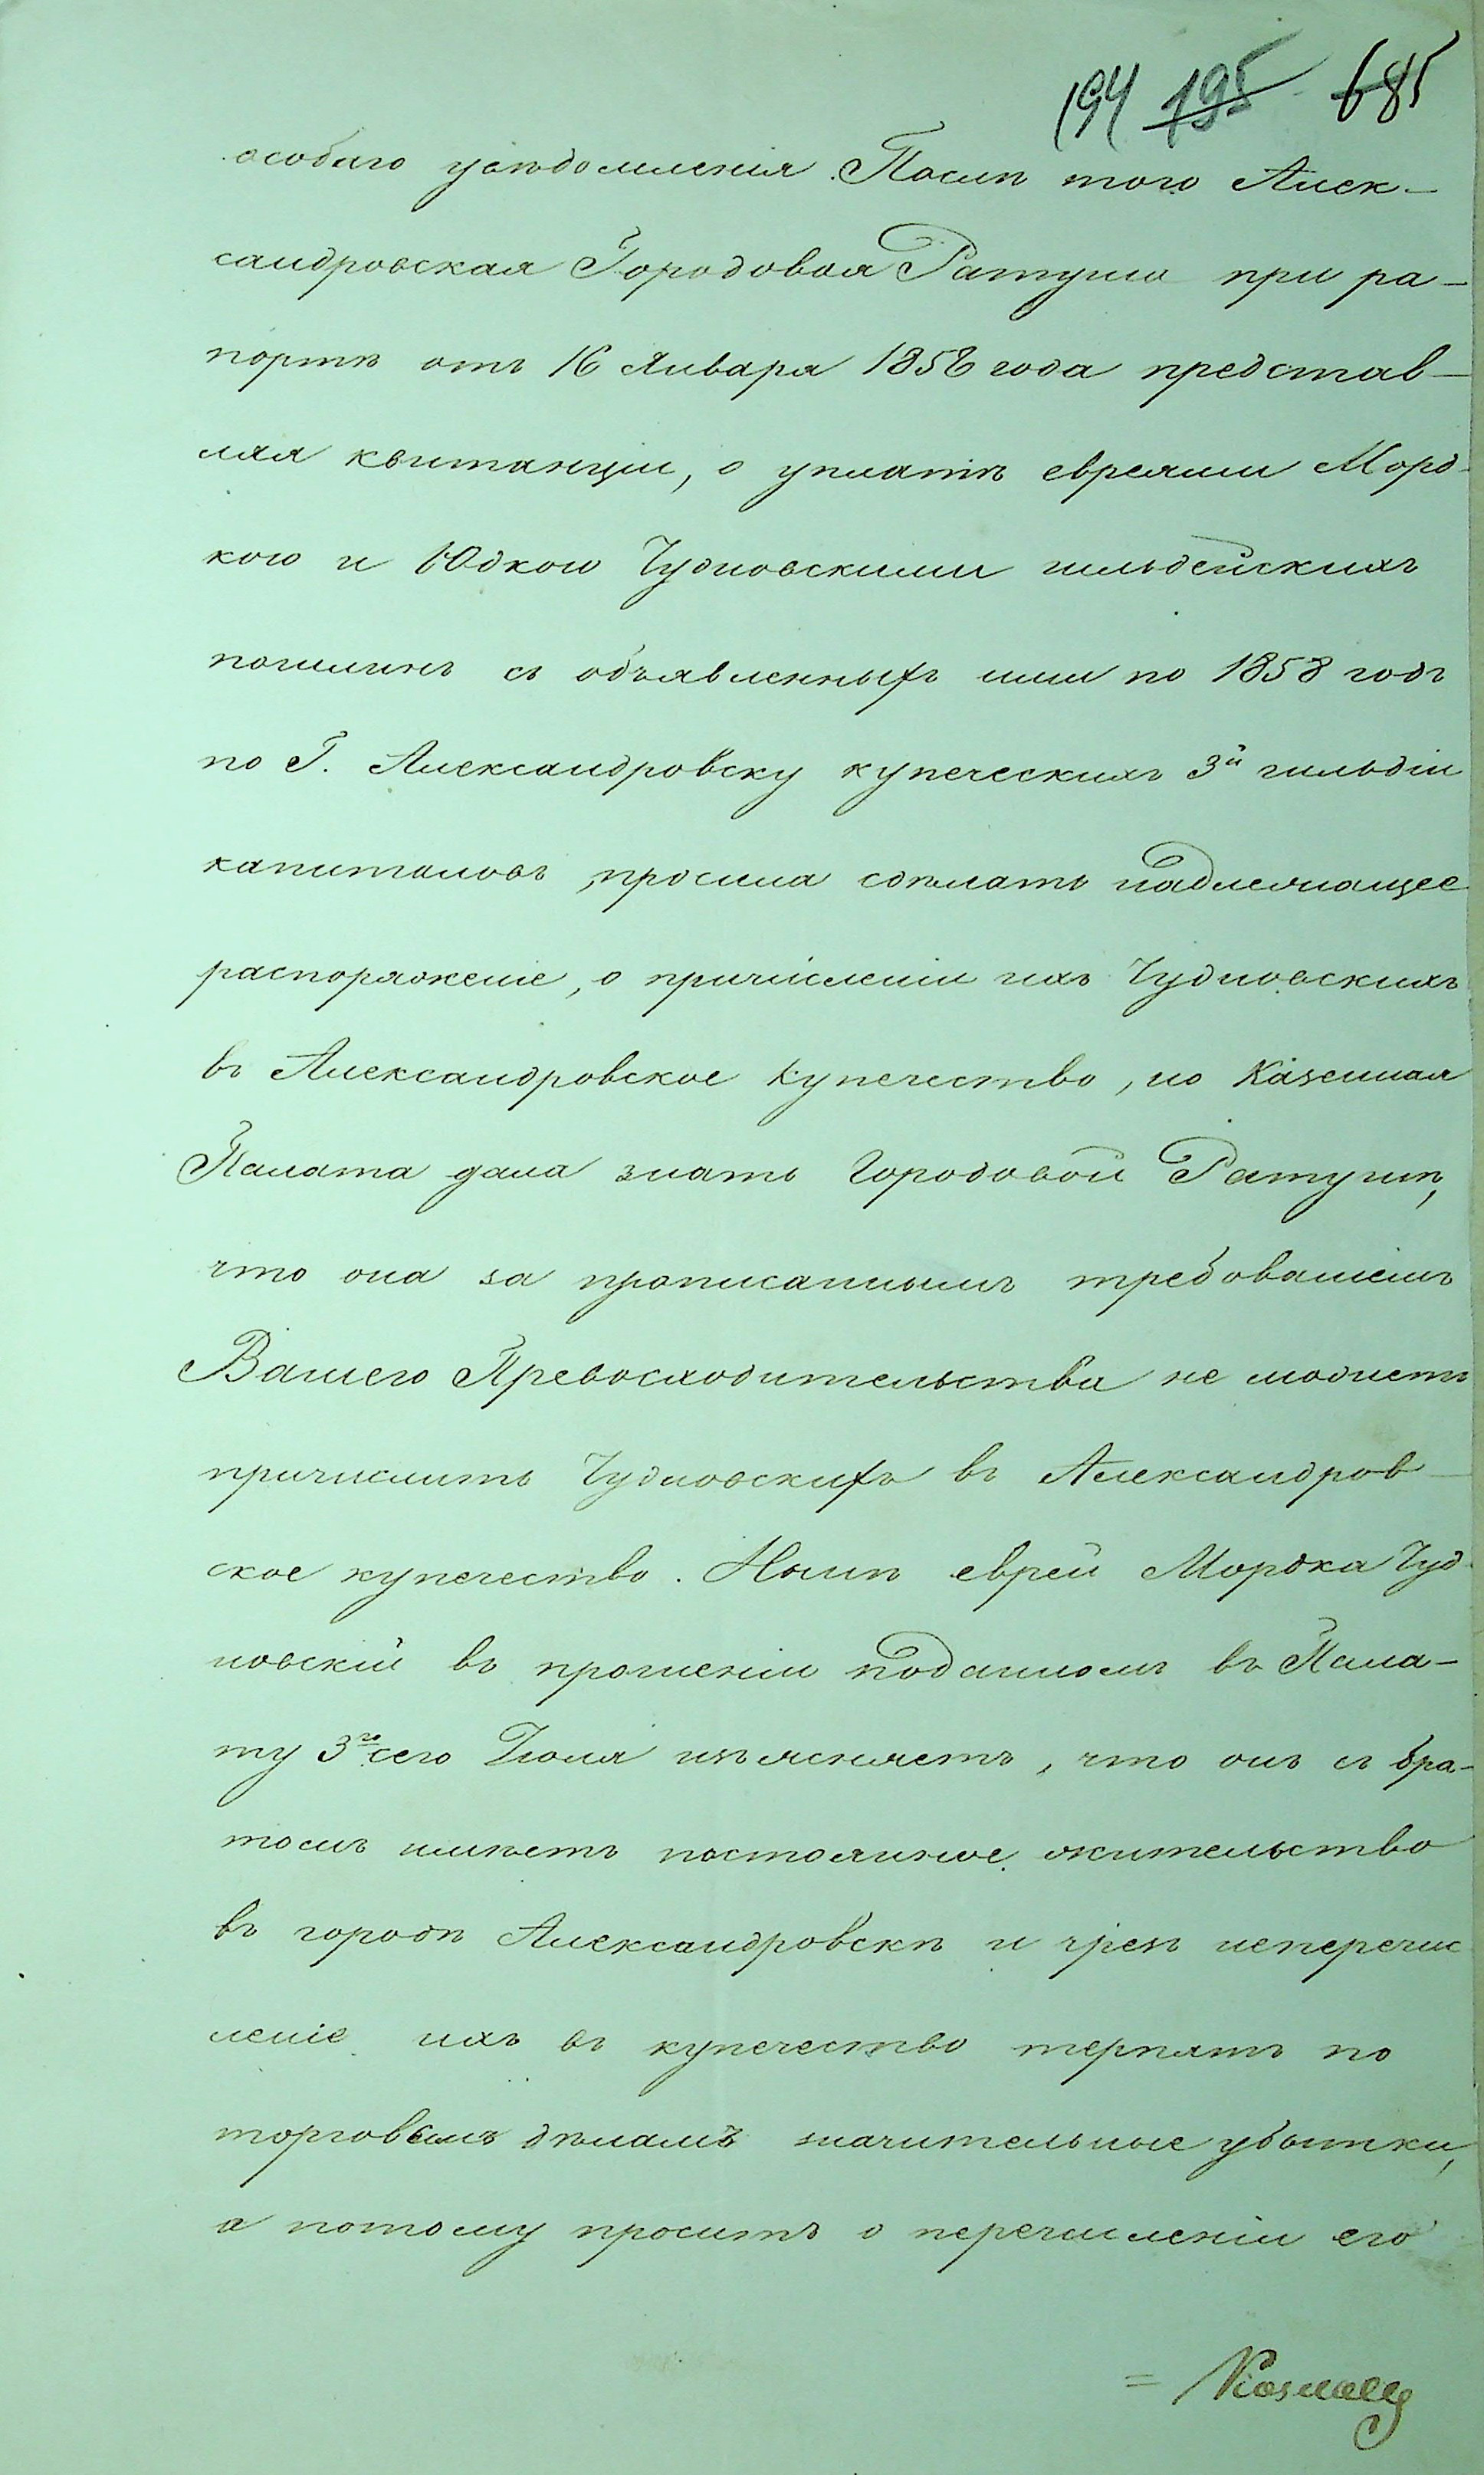 194 195 685
особаго увѣдомленія. Послѣ того Алек-
сандровская Городовая Ратуша при ра-
портѣ отъ 16 Января 1858 года представ-
ляя квитанціи, о уплатѣ евреями Морд-
кою и Юдкою Чудновскими гильдейскихъ
пошлинъ съ объявленныхъ ими по 1858 годъ
по Г. Александровску купеческихъ 3й гильдіи
капиталовъ, просила сдѣлать надлежащее
распоряженіе, о причисленіи ихъ Чудновскихъ
въ Александровское купечество, но Казенная
Палата дала знать Городовой Ратушѣ,
что она за прописаннымъ требованіемъ
Вашего Превосходительства не можетъ
причислить Чудновскихъ въ Александров-
ское купечество. Нынѣ еврей Мордка Чуд-
новскій въ прошеніи поданномъ въ Пала-
ту 3го сего Іюля изъясняетъ, что онъ съ бра-
томъ имѣетъ постоянное жительство
въ городѣ Александровскѣ и чрезъ неперечис
леніе ихъ въ купечество терпятъ по
торговымъ дѣламъ значительные убытки,
а потому проситъ о перечисленіи его
=